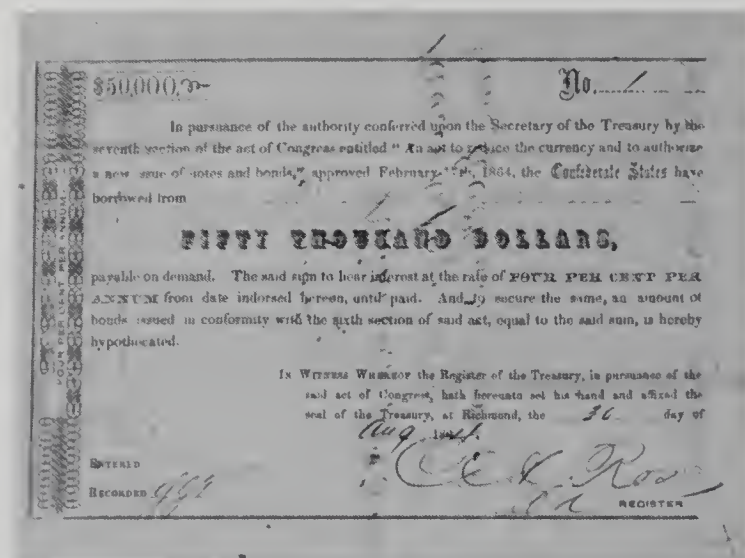 $50,000,
No. 1
In pursuance of the authority conferred upon the Secretary of the Treasury by the
seventh section of the act of Congress entitled "An act to reduce the currency and to authorize
a new issue of notes and bonds," approved February 17th, 1864, the Confederate States have
borrowed from
FIFTY THOUSAND DOLLARS,
payable on demand. The said sum to bear interest at the rate of FOUR PER CENT PER
ANNUM from date indorsed hereon, until paid. And to secure the same, an amount of
bonds issued in conformity with the sixth section of said act, equal to the said sum, is hereby
hypothecated.
IN WITNESS WHEREOF the Register of the Treasury, in pursuance of the
said act of Congress, hath hereunto set his hand and affixed the
seal of the Treasury, at Richmond, the 30 day of
Aug
ENTERED
RECORDED
REGISTER
FOUR PER CENT PER ANNUM.